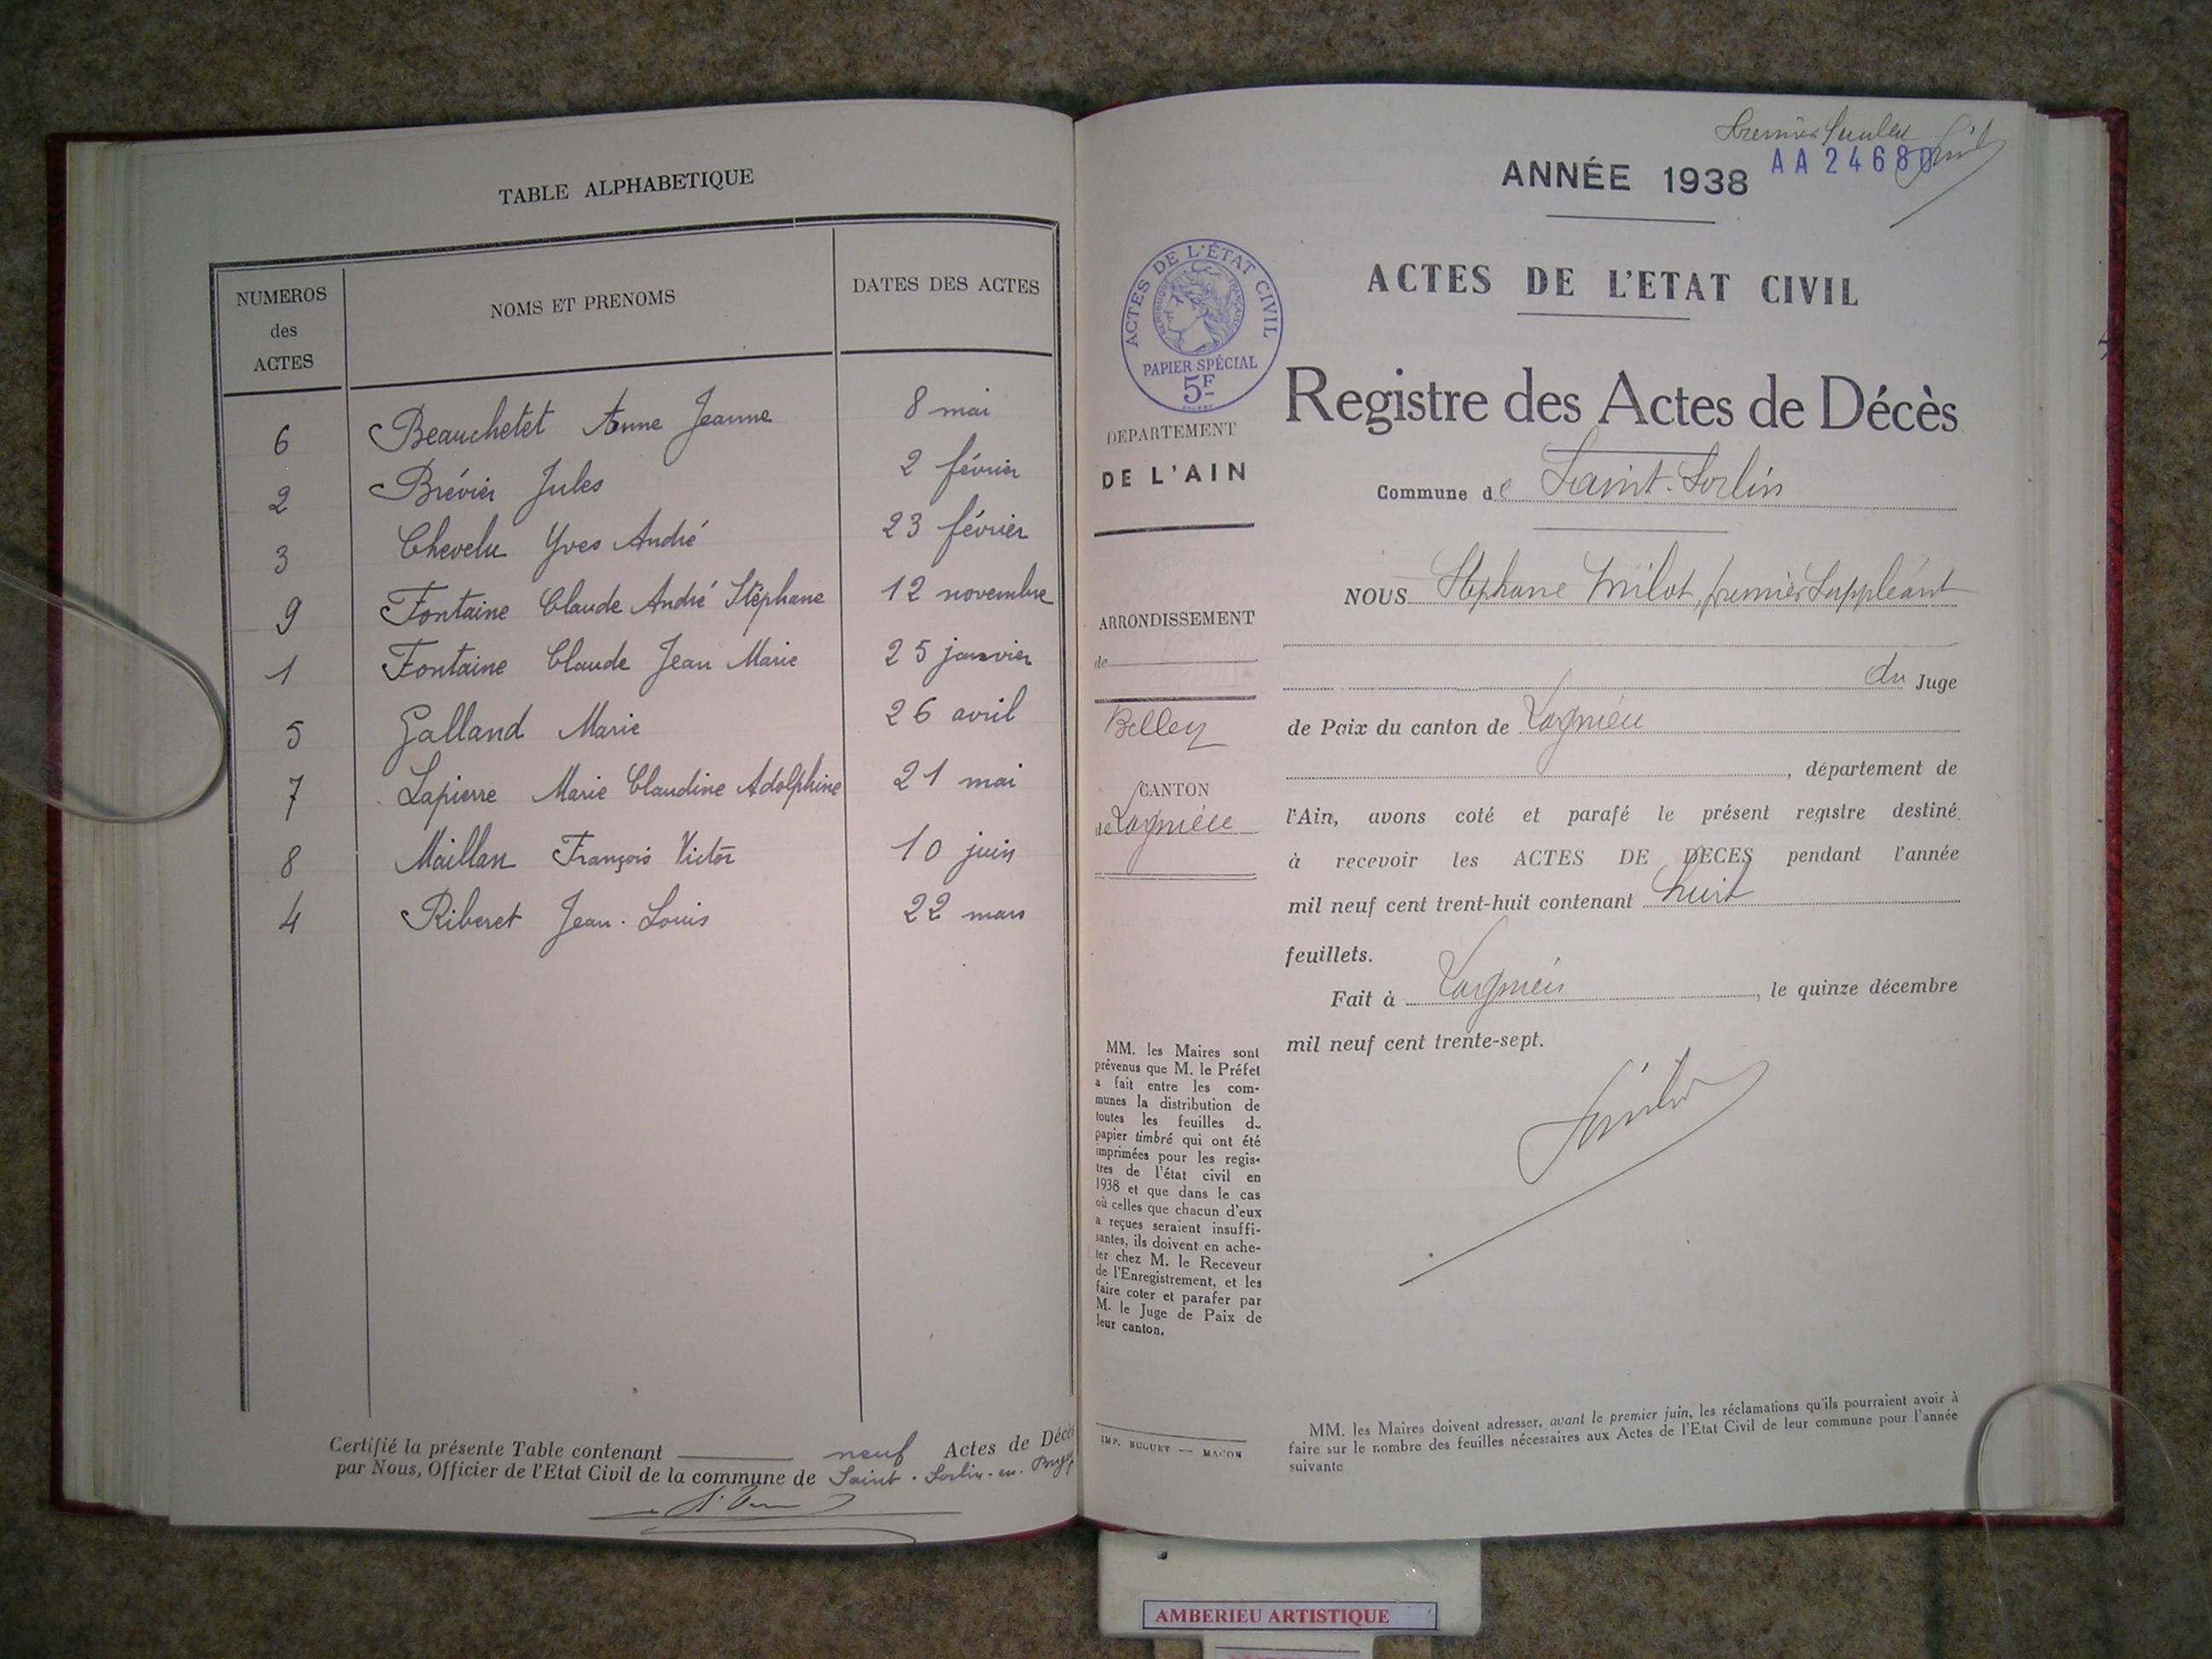 TABLE ALPHABETIQUE
NUMEROS des ACTES
NOMS ET PRENOMS
DATES DES ACTES
6 Beauchetet Anne Jeanne 8 mai
2 Brévier Jules 2 février
3 Chevelu Yves André 23 février
9 Fontaine Claude André Stéphane 12 novembre
1 Fontaine Claude Jean Marie 25 janvier
5 Galland Marie 26 avril
7 Lapierre Marie Claudine Adolphine 21 mai
8 Maillan François Victor 10 juin
4 Riberet Jean-Louis 22 mars
Certifié la présente Table contenant neuf Actes de Décès
par Nous, Officier de l'Etat Civil de la commune de Saint-Sorlin-en-Bugey
Premier
AA 24680
ANNÉE 1938
ACTES DE L'ETAT CIVIL
ACTES DE L'ÉTAT CIVIL
RÉPUBLIQUE FRANÇAISE
PAPIER SPÉCIAL
5F
Registre des Actes de Décès
DEPARTEMENT
DE L'AIN
Commune de Saint-Sorlin
NOUS Stéphane Milot, premier Suppléant
ARRONDISSEMENT
de
Belley
du Juge
de Paix du canton de Lagnieu
, département de
CANTON
de Lagnieu
l'Ain, avons coté et parafé le présent registre destiné
à recevoir les ACTES DE DECES pendant l'année
mil neuf cent trent-huit contenant huit
feuillets.
Fait à Lagnieu, le quinze décembre
mil neuf cent trente-sept.
MM. les Maires sont
prévenus que M. le Préfet
a fait entre les com-
munes la distribution de
toutes les feuilles d
papier timbré qui ont été
imprimées pour les regis-
tres de l'état civil en
1938 et que dans le cas
où celles que chacun d'eux
a reçues seraient insuffi-
santes, ils doivent en ache-
ter chez M. le Receveur
de l'Enregistrement, et les
faire coter et parafer par
M. le Juge de Paix de
leur canton.
IMP. BUGUET — MACON
MM. les Maires doivent adresser, avant le premier juin, les réclamations qu'ils pourraient avoir à
faire sur le nombre des feuilles nécessaires aux Actes de l'Etat Civil de leur commune pour l'année
suivante
AMBERIEU ARTISTIQUE